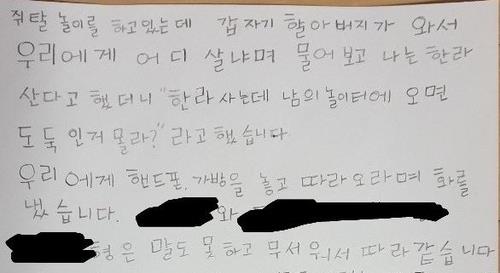 쥐탈 놀이를 하고있는데 갑자기 할아버지가 와서
우리에게 어디 살냐며 물어보고 나는 한라
산다고 했더니 "한라 사는데 남의놀이터에 오면
도둑인거 몰라?" 라고 했습니다
우리에게 핸드폰, 가방을 놓고 따라오라며 화를
냈습니다. 와
형은 말도 못하고 무서워서 따라갔습니다